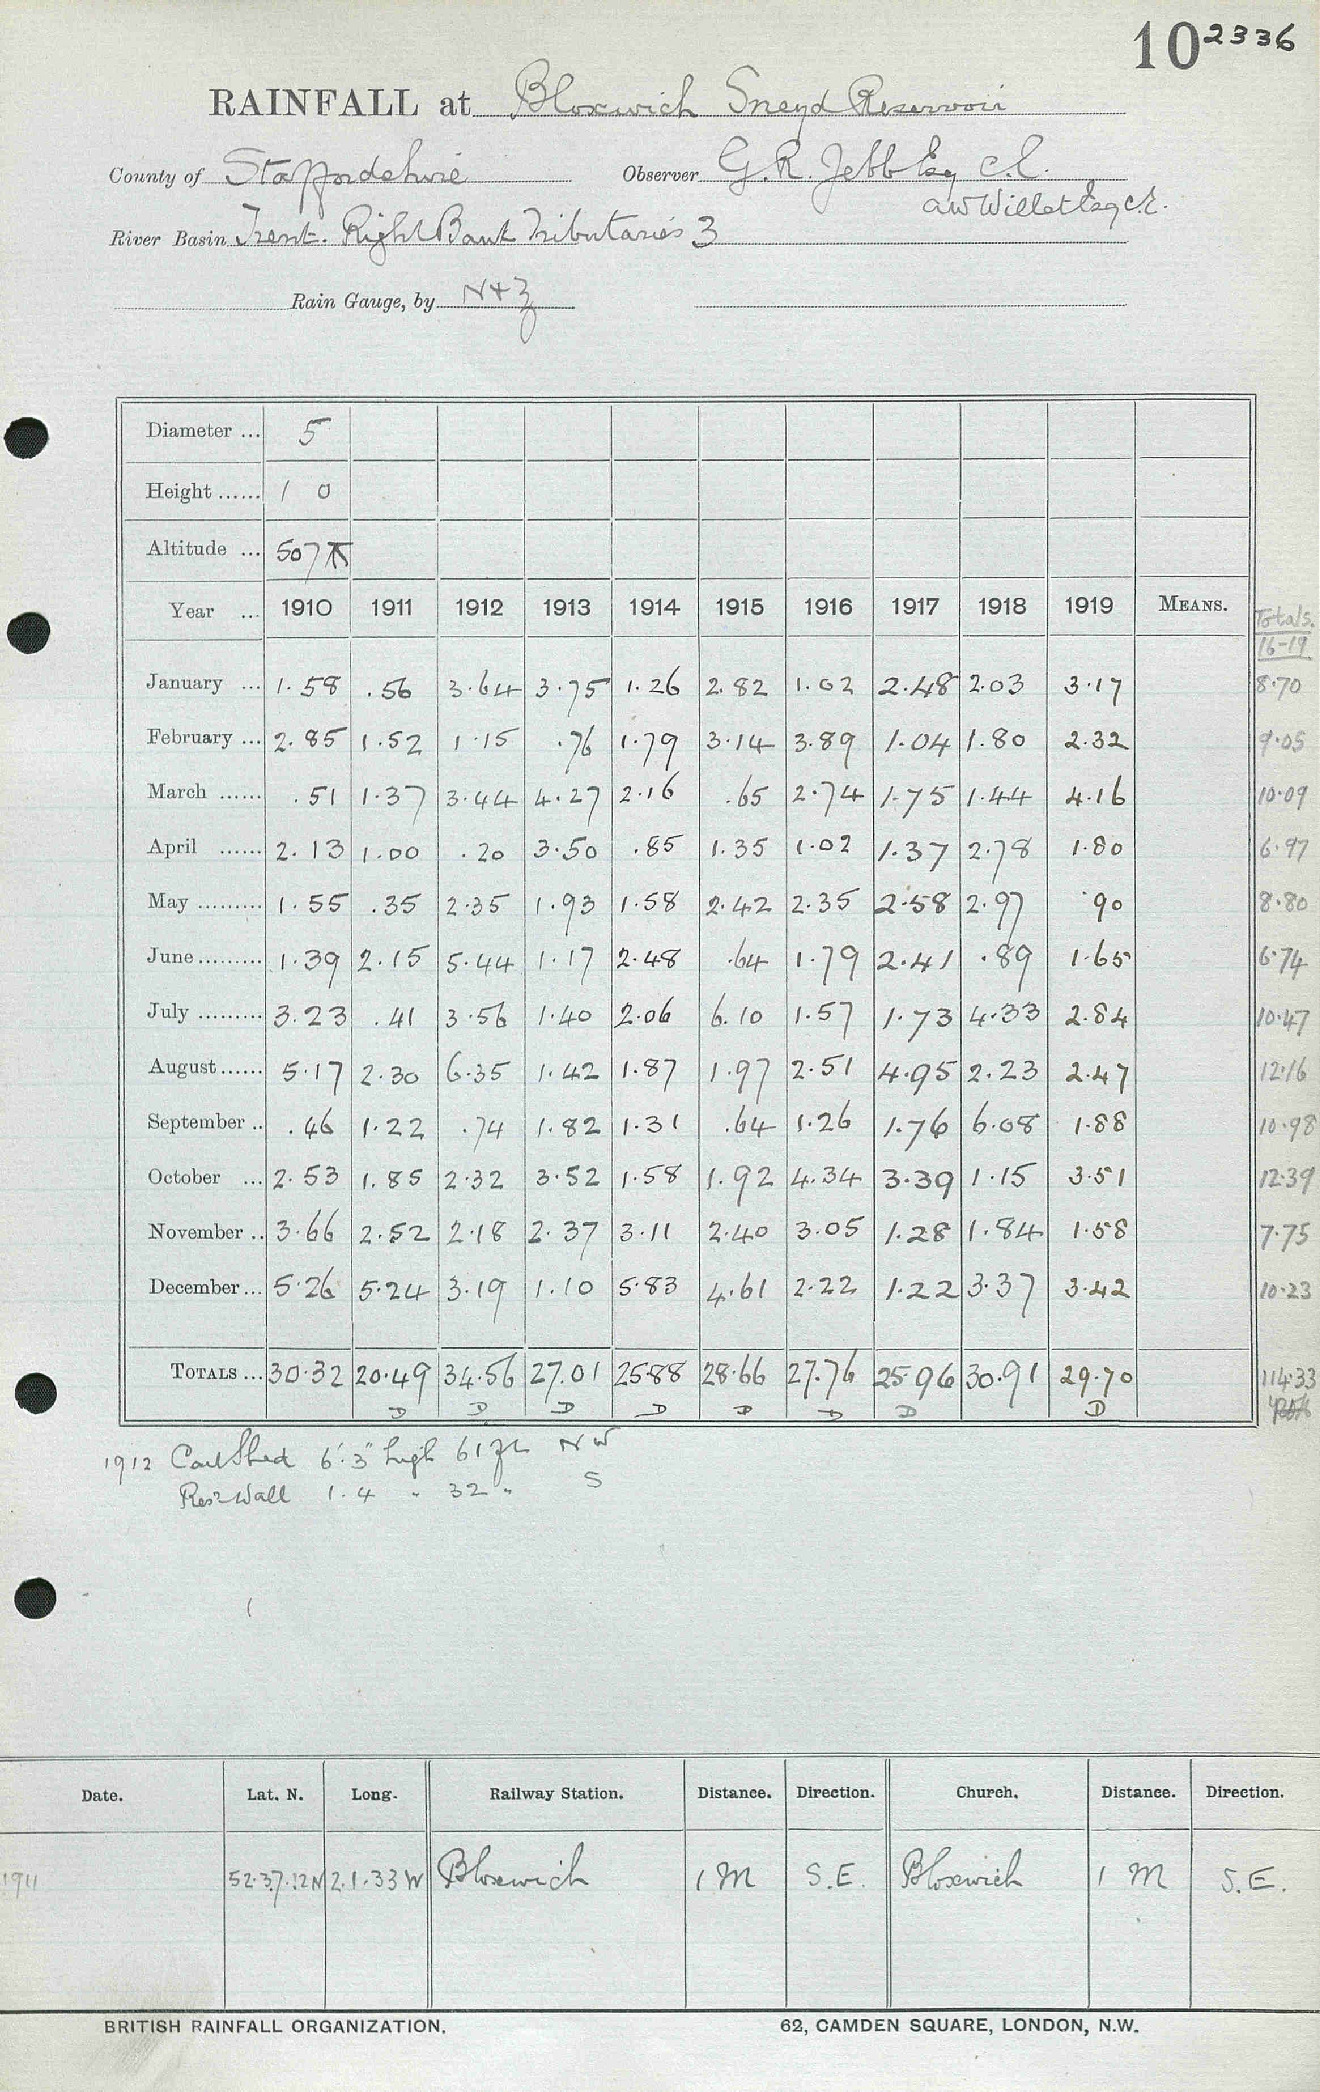 10 2336
RAINFALL at Bloxwich Sneyd Reservoir
County of Staffordshire Observer G. R. Jebb Esq C.E.
A W Willet Esq C.E.
River Basin Trent. Right Bank Tributaries 3
Rain Gauge, by N+Z
Diameter ... 5
Height ...... 1 0
Altitude ... 507
Year ... 1910 1911 1912 1913 1914 1915 1916 1917 1918 1919 MEANS. Totals. 16-19
January ... 1.58 .56 3.64 3.75 1.26 2.82 1.02 2.48 2.03 3.17 8.70
February ... 2.85 1.52 1.15 .76 1.79 3.14 3.89 1.04 1.80 2.32 9.05
March ...... .51 1.37 3.44 4.27 2.16 .65 2.74 1.75 1.44 4.16 10.09
April ...... 2.13 1.00 .20 3.50 .85 1.35 1.02 1.37 2.78 1.80 6.97
May ......... 1.55 .35 2.35 1.93 1.58 2.42 2.35 2.58 2.97 .90 8.80
June ......... 1.39 2.15 5.44 1.17 2.48 .64 1.79 2.41 .89 1.65 6.74
July ......... 3.23 .41 3.56 1.40 2.06 6.10 1.57 1.73 4.33 2.84 10.47
August ...... 5.17 2.30 6.35 1.42 1.87 1.97 2.51 4.95 2.23 2.47 12.16
September .. .46 1.22 .74 1.82 1.31 .64 1.26 1.76 6.08 1.88 10.98
October ... 2.53 1.85 2.32 3.52 1.58 1.92 4.34 3.39 1.15 3.51 12.39
November .. 3.66 2.52 2.18 2.37 3.11 2.40 3.05 1.28 1.84 1.58 7.75
December ... 5.26 5.24 3.19 1.10 5.83 4.61 2.22 1.22 3.37 3.42 10.23
TOTALS ... 30.32 20.49 34.56 27.01 25.88 28.66 27.76 25.96 30.91 29.70 114.33
D D D D D D D D
1912 Coal Shed 6'.3" high 61 ft NW
Resr Wall 1.4 " 32 " S
Date. Lat. N. Long. Railway Station. Distance. Direction. Church. Distance. Direction.
1911 52.37.12N 2.1.33W Bloxwich 1 M S.E. Bloxwich 1 M S.E.
BRITISH RAINFALL ORGANIZATION. 62, CAMDEN SQUARE, LONDON, N.W.